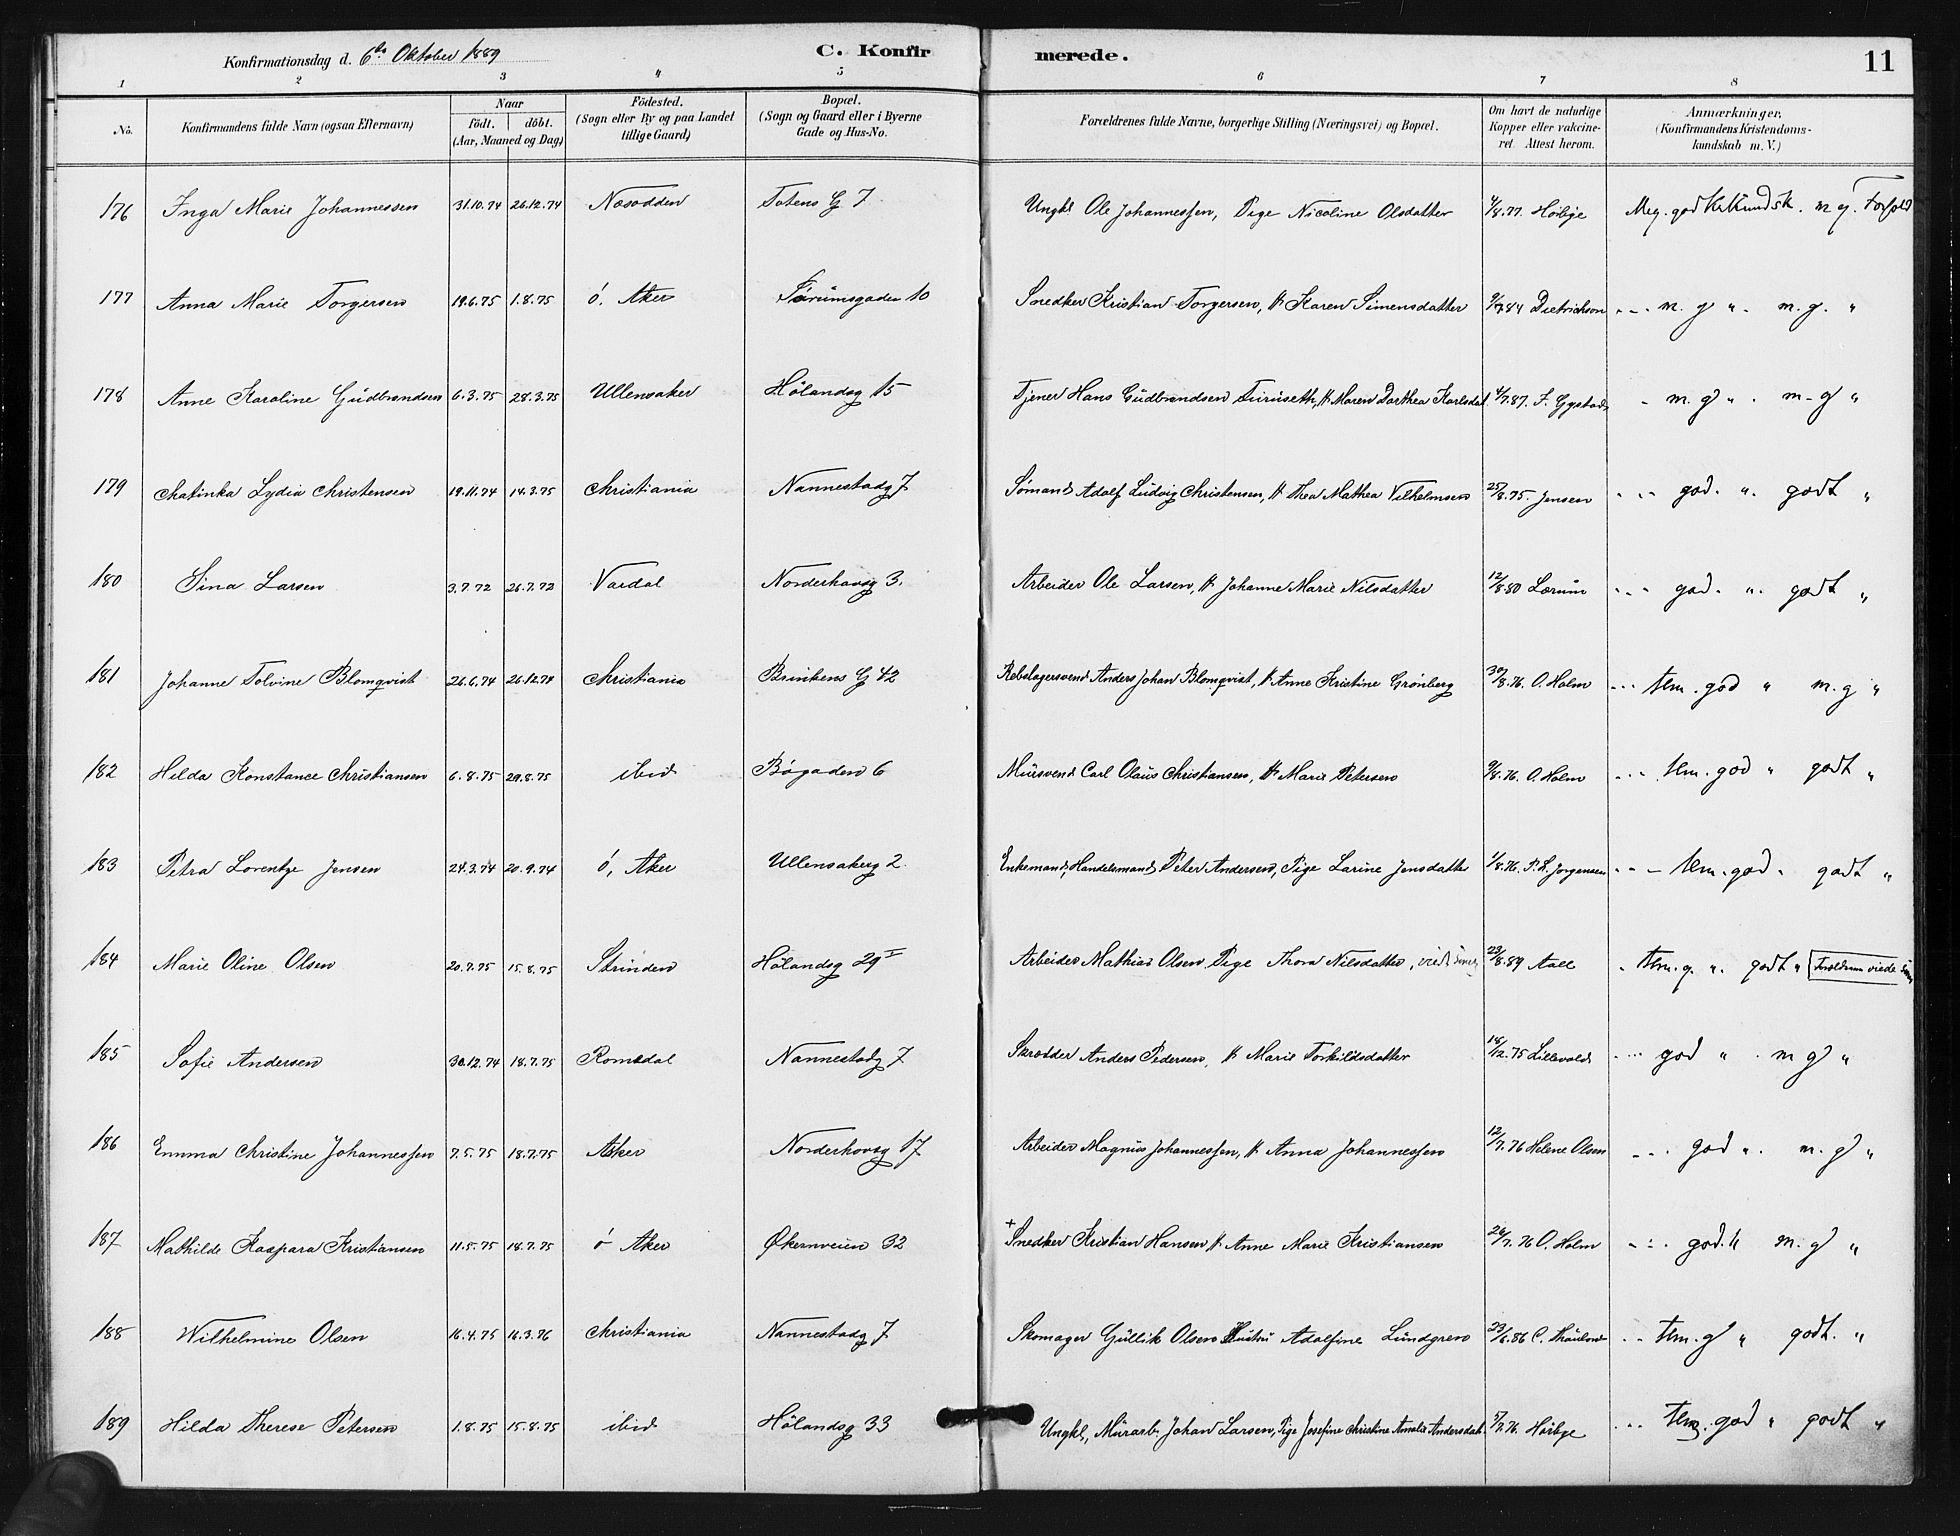 Konfirmationsdag d. 6te Oktober 1889 C. Konfirmerede. 11
1 2 3 4 5 6 7 8
No. Konfirmandens fulde Navn (ogsaa Efternavn) Naar födt. döbt. (Aar, Maaned og Dag) Födested. (Sogn eller By og paa Landet tillige Gaard) Bopæl. (Sogn og Gaard eller i Byerne Gade og Hus-No. Forældrenes fulde Navne, borgerlige Stilling (Næringsvei) og Bopæl. Om havt de naturlige Kopper eller vakcineret. Attest herom. Anmærkninger. (Konfirmandens Kristendomskundskab m. V.)
176 Inga Marie Johannessen 31.10.74 26.12.74 Næsodden Totens G 7 Ungkl Ole Johannessen, Pige Nicoline Olsdatter 4/8.77. Hørbye Meg. god Kr.Kundsk. m g. Forhold
177 Anna Marie Torgersen 19.6.75 1.8.75 ö. Aker Sørumsgaden 10 Snedker Kristian Torgersen, H Karen Simensdatter 9/7.84 Dietrichson - - - m. g " . m. g. "
178 Anne Karoline Gudbrandsen 6.3.75 28.3.75 Ullensaker Hölandsg 15 Tjener Hans Gudbrandsen Furuseth, H Maren Dorthea Karlsdat 4/7.87. F. Gystad - m. g " . m - g "
179 Chatinka Lydia Christensen 19.11.74 14.3.75 Christiania Nannestadg 7 Sømand Adolf Ludvig Christensen, H Thea Mathea Vilhelmsen 25/8.75. Jensen - - - god. ". godt "
180 Sina Larsen 3.7.72 26.7.72 Vardal Norderhovsg 3. Arbeider Ole Larsen, H Johanne Marie Nilsdatter 12/8.80 Lærum - - - god. ". godt "
181 Johanne Tolvine Blomqvist 26.6.74 26.12.74 Christiania Brinkens G 42 Rebslagersvend Anders Johan Blomqvist, H Anne Kristine Grönberg 30/8.76. O. Holm - - - tem. god " m. g "
182 Hilda Konstance Christiansen 6.8.75 29.8.75 ibid Bögaden 6 Mursvend Carl Olaus Christiansen, H Marie Petersen 9/8.76. O. Holm - - - tem. god " godt "
183 Petra Lorentze Jensen 24.3.74 20.9.74 ö, Aker Ullensakerg 2. Enkemand, Handelsmand Peter Andersen, Pige Larine Jensdatter 1/8.76. P. L. Jorgensen - - - tem. god " godt "
184 Marie Oline Olsen 20.7.75 15.8.75 Strinden Hölandsg 29 I Arbeider Mathias Olsen Pige Thora Nilsdatter, viede 23/8.89 Aall " tem. g. ". godt " Forældrene viede
185 Sofie Andersen 30.12.74 18.7.75 Romedal Nannestadg 7 Skrædder Anders Pedersen, H Marie Torkildsdatter 18/12.75 Lillevold - - - god " . m g "
186 Emma Christine Johannessen 7.5.75 18.7.75 Aker Norderhovsg 17 Arbeider Magnus Johannessen, H Anna Johannessen 12/7.76 Helene Olsen - - - god ". m. g "
187 Mathilde Kaspara Kristiansen 11.5.75 18.7.75 ö Aker Økernveien 32 + Snedker Kristian Hansen, H Anne Marie Kristiansen 26/7.76 O. Holm - - - god. " m. g "
188 Wilhelmine Olsen 16.4.75 16.3.76 Christiania Nannestadg 7 Skomager Gullik Olsen Hustru Adolfine Lundgren 23/6.86 C. - - tem. g " godt. "
189 Hilda Therese Petersen 1.8.75 15.8.75 ibid Hölandsg 33 Ungkl, Murarb. Johan Larsen, Pige Josefine Christine Amalie Andersdat. 5/7.76. Hörbye - - - tem. god " godt "